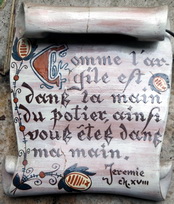 Comme l'ar-
gile est
dans la main
du potier, ainsi
vous êtes dans
ma main.
Jeremie
ch. XVIII